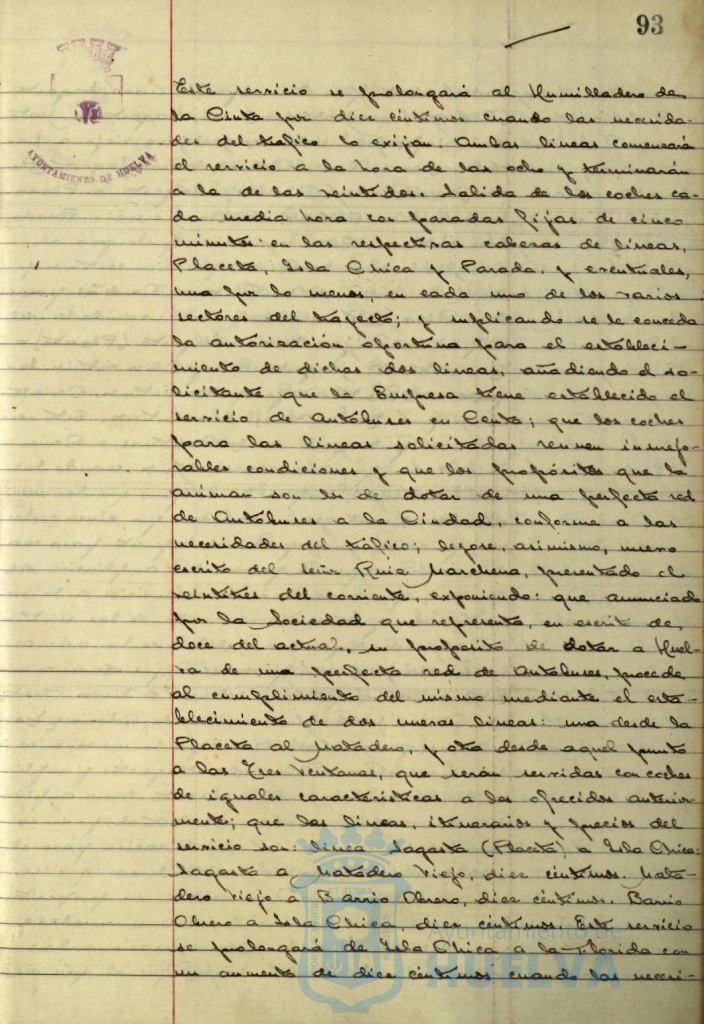 93
AYUNTAMIENTO DE HUELVA
Este servicio se prolongará al Humilladero de
la Cinta por diez céntimos cuando las necesida-
des del tráfico lo exijan. Ambas líneas comenzarán
el servicio a la hora de las ocho y terminarán
a la de las veintidos. Salida de los coches ca-
da media hora con paradas fijas de cinco
minutos en las respectivas cabezas de líneas,
Placeta, Isla Chica y Parada, y eventuales,
una por lo menos, en cada uno de los varios
sectores del trayecto; y suplicando se le conceda
la autorización oportuna para el estableci-
miento de dichas dos líneas, añadiendo el so-
licitante que la Empresa tiene establecido el
servicio de Autobuses en Ceuta; que los coches
para las líneas solicitadas reunen inmejo-
rables condiciones y que los propósitos que la
animan son los de dotar de una perfecta red
de Autobuses a la Ciudad, conforme a las
necesidades del tráfico; leyose, asimismo, nuevo
escrito del señor Ruiz Marchena, presentado el
veintitres del corriente, exponiendo: que anunciado
por la Sociedad que representa, en escrito de
doce del actual, su propósito de dotar a Huel-
va de una perfecta red de Autobuses, procede
al cumplimiento del mismo mediante el esta-
blecimiento de dos nuevas líneas: una desde la
Placeta al Matadero, y otra desde aquel punto
a las Tres Ventanas, que serán servidas con coches
de iguales características a los ofrecidos anterior-
mente; que las líneas, itinerarios y precios del
servicio son: línea Sagasta (Placeta) a Isla Chica:
Sagasta a Matadero Viejo, diez céntimos. Mata-
dero Viejo a Barrio Obrero, diez céntimos. Barrio
Obrero a Isla Chica, diez céntimos. Este servicio
se prolongará de Isla Chica a la Florida con
un aumento de diez céntimos cuando las necesi-
HUELVA